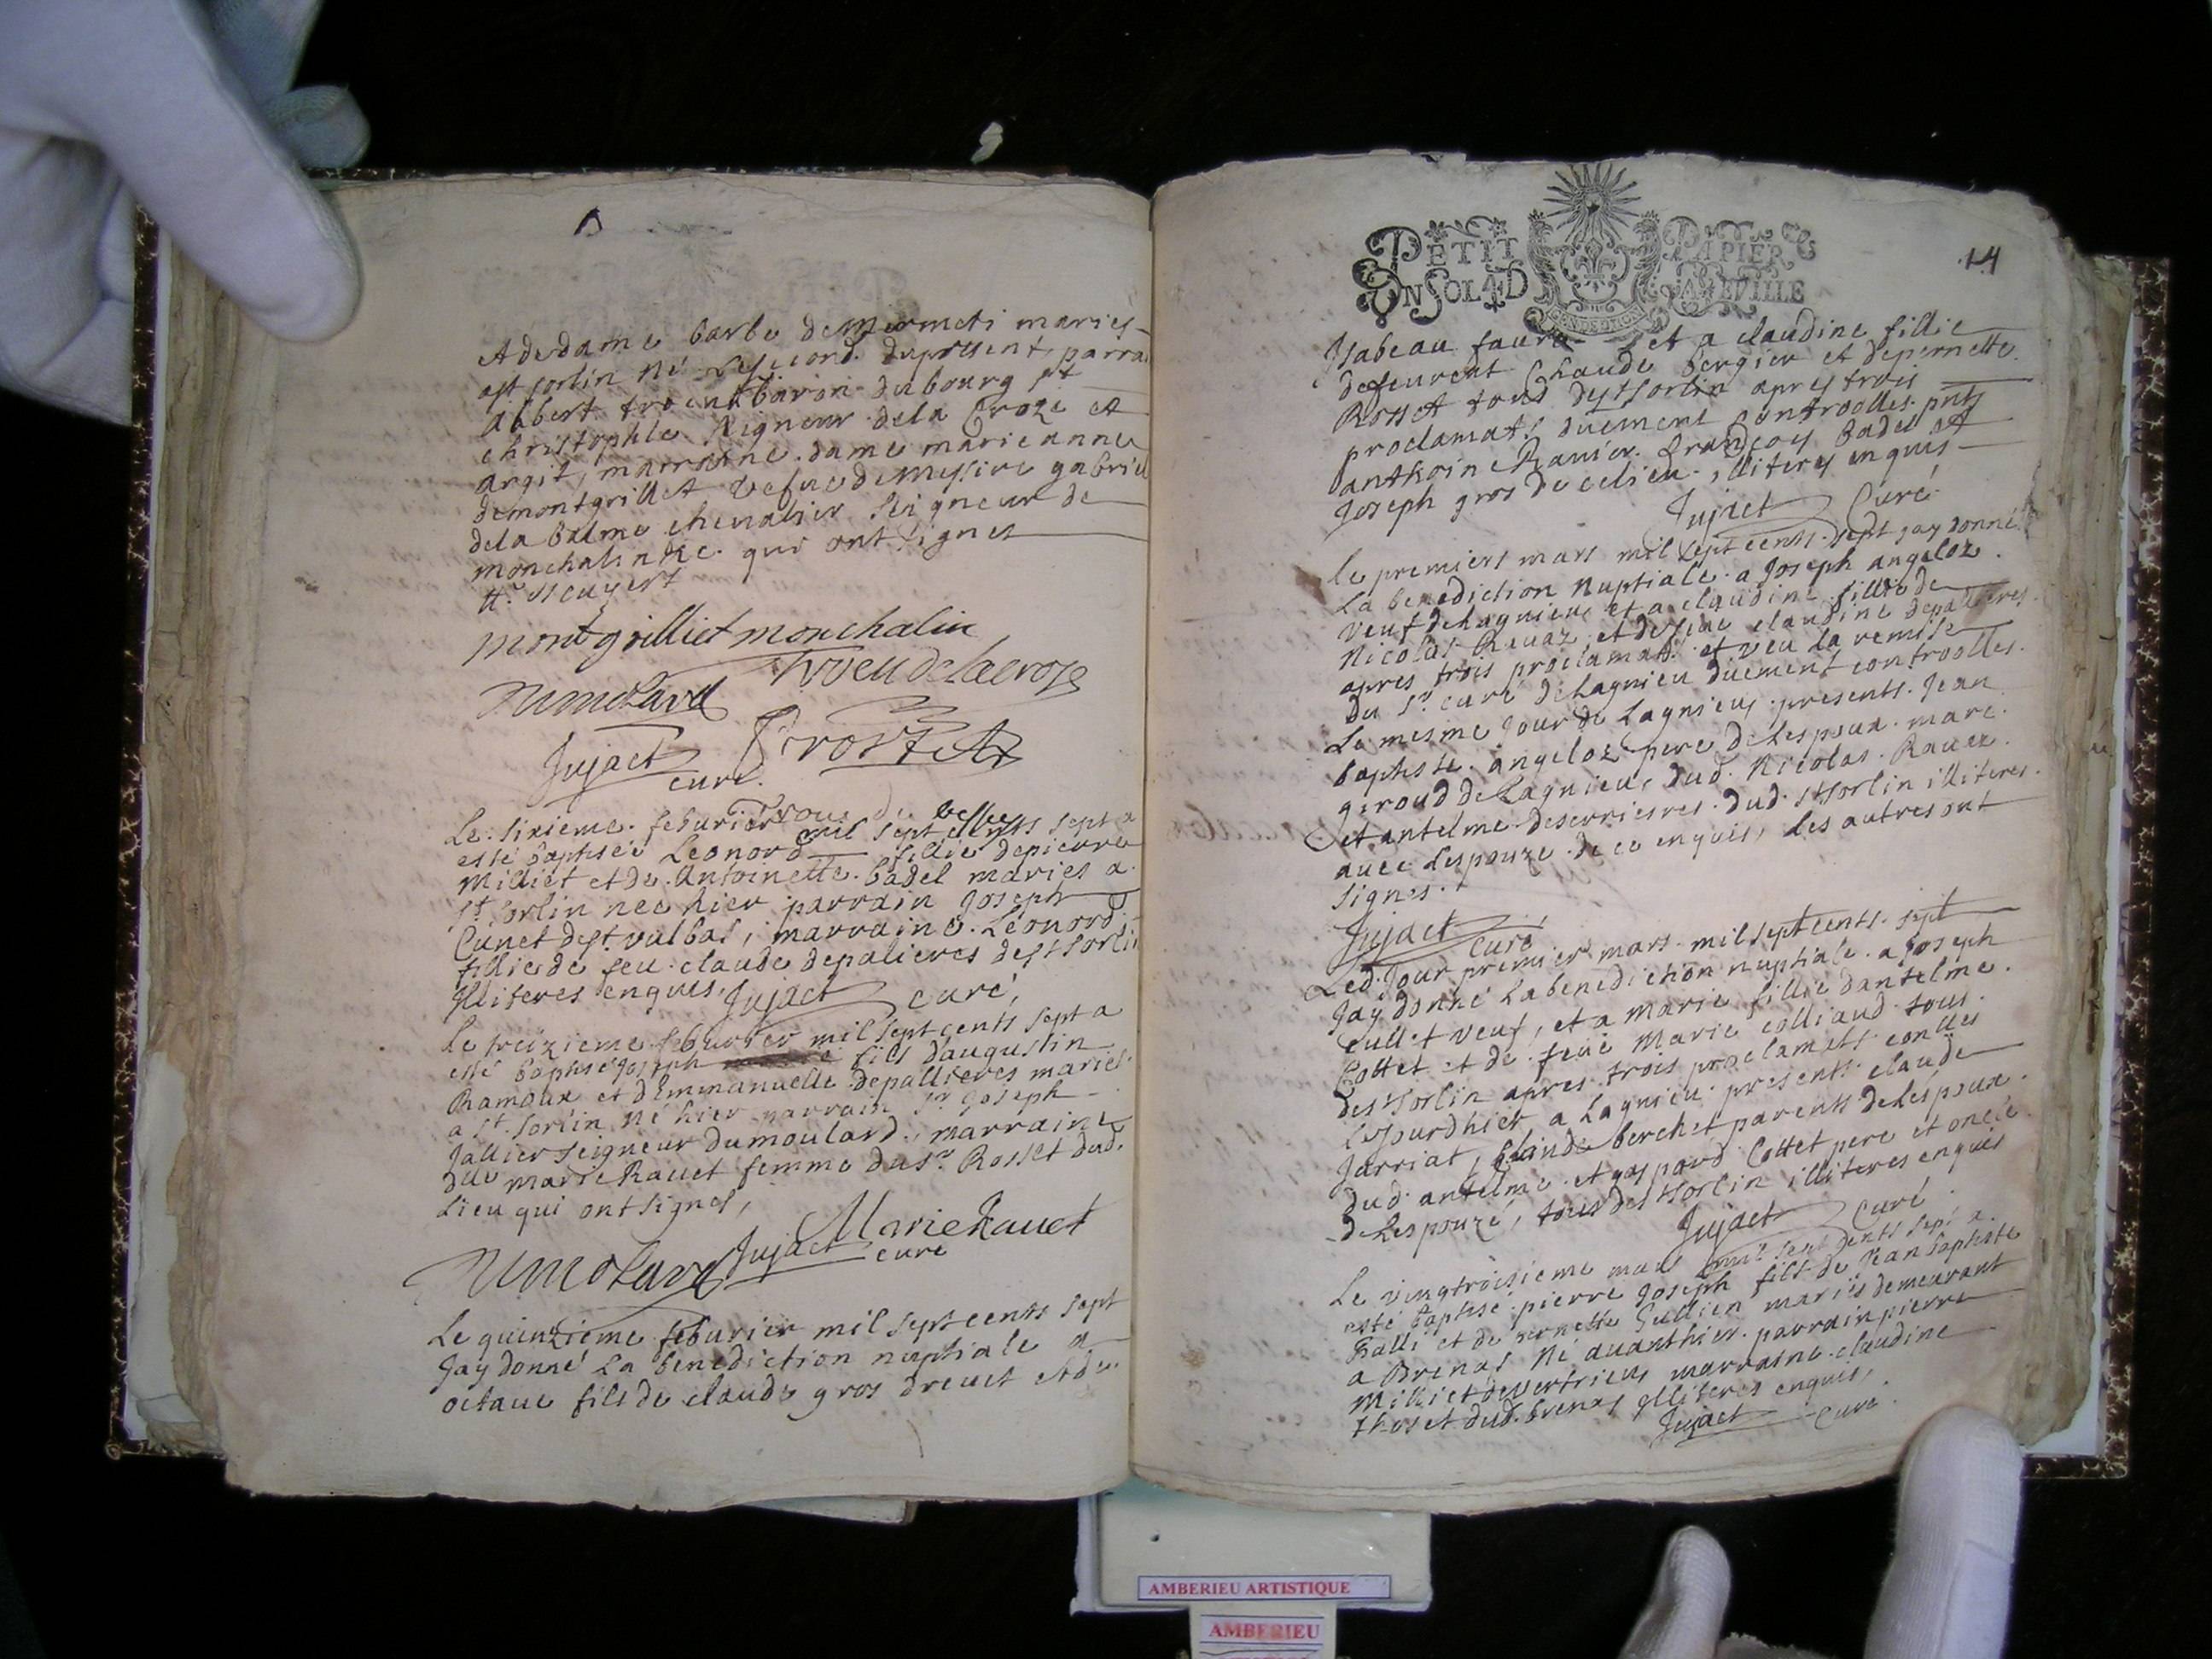 Et de dame barbe de Mermeti maries
a st sorlin né le second du present, parrain
albert trocu baron du bourg st
christophle seigneur de la Croze et
argit, marraine dame marie anne
de montgrillet vefve de messire gabriel
de la balme chevalier seigneur de
monchalin &c. qui ont signes
montgrilliet monchalin
trocu de la croze
Jujact
curé.
Le sixieme feburier mil sept cents sept a
esté baptisée Leonord fillie de pierre
Milliet et de Antoinette badel maries a
st sorlin nee hier parrain Joseph
Cunet de st vulbas, marraine Leonord
fillie de feu claude depalieres de st sorlin
Illiteres enquis, Jujact curé,
Le treizieme feburier mil sept cents sept a
esté baptisé Joseph fils d'augustin
Ramoux et d'Emmanuelle depallieres maries
a st sorlin né hier parrain sr Joseph
Jallier seigneur du moulard, marraine
dlle marie Rauet femme du sr Rosset dud.
Lieu qui ont signes,
Marie Rauet
Jujact curé
Le quinzieme feburier mil sept cents sept
Jay donné La benediction nuptiale a
octave fils de claude gros drevet et de
PETIT PAPIER
UN SOL 4 D LA FEUILLE
14
Isabeau faure et a claudine fillie
de feurent Claude bergier et de pernette
Rosset tous de st sorlin apres trois
proclamats duement controolles pnts
anthoine Ravier françois badel et
Joseph gros de ce lieu illiteres enquis
Jujact Curé
le premiers mars mil sept cents sept jay donné
La benediction Nuptiale a Joseph angeloz
veuf de Lagnieu et a claudine fillie de
Nicolas Ravaz et de feue claudine depallieres
apres trois proclamats et veu la remise
du sr curé de Lagnieu duement controolles
Le mesme Jour de Lagnieu, presents Jean
baptiste angeloz pere de Lespoux marc
giroud de Lagnieu, dud. Nicolas Ravaz
et antelme deserrieres dud. st sorlin illiteres
avec Lespouze de ce enquis, les autres ont
signes.
Jujact curé
Led. Jour premier mars mil sept cents sept
Jay donné La benediction nuptiale a Joseph
Cullet veuf, et a Marie fillie dantelme
Cottet et de feue Marie colliaud tous
de st sorlin apres trois proclamats conlles
cejourdhier a Lagnieu presents claude
Jarriat, Claude berchet parents de Lespoux
dud. antelme et gaspard Cottet pere et oncle
de Lespouzé, tous de st sorlin illiteres enquis
Jujact curé
Le vingtroisieme mars mil sept cents sept a
esté baptisé pierre Joseph fils de Jean baptiste
Ralli et de pernette Gullien mariés demeurant
a Brenas né avanthier parrain pierre
Milliet de vertrieu marraine claudine
thoset dud. brenas illiteres enquis,
Jujact Curé
AMBERIEU ARTISTIQUE
AMBERIEU